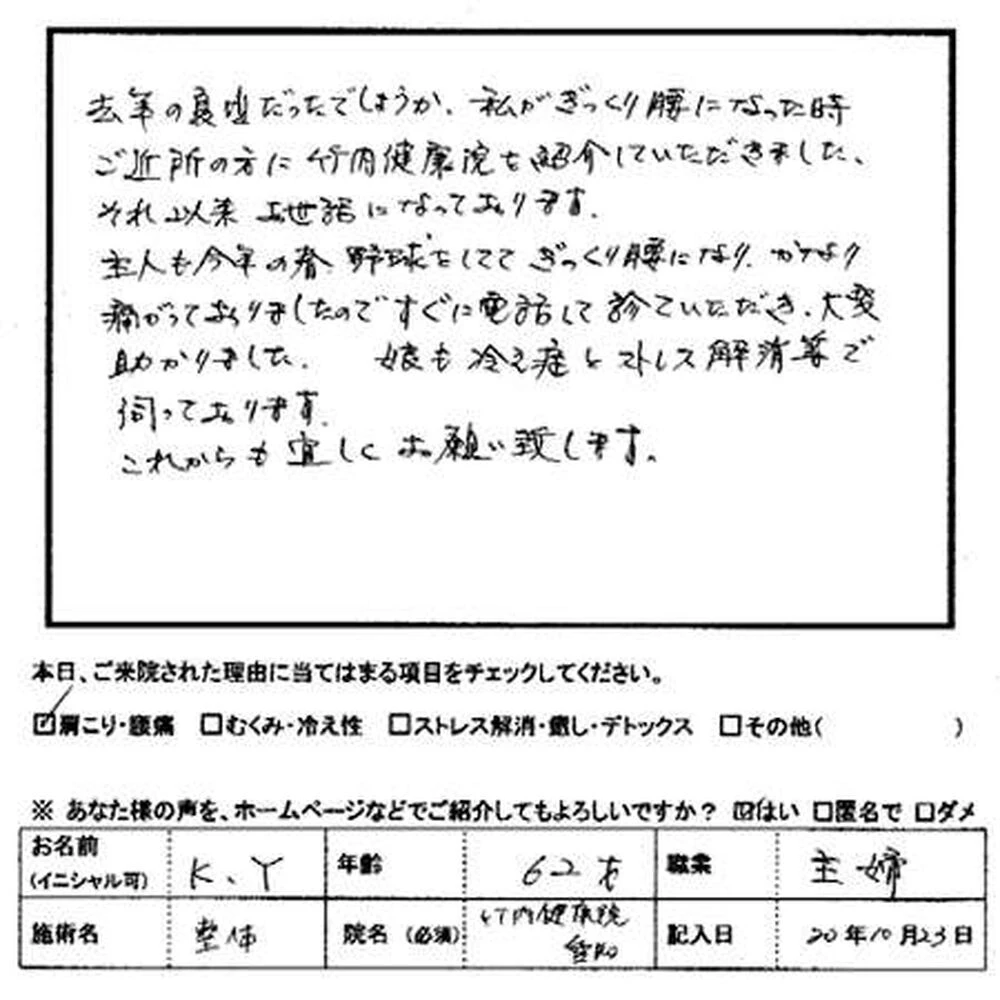 去年の夏頃だったでしょうか、私がぎっくり腰になった時
ご近所の方に竹内健康院を紹介していただきました、
それ以来お世話になっております。
主人も今年の春、野球をしてて ぎっくり腰になり、かなり
痛がっておりましたのですぐに電話して診ていただき、大変
助かりました。 娘も冷え症とストレス解消等で
伺っております。
これからも宜しくお願い致します。
本日、ご来院された理由に当てはまる項目をチェックしてください。
☑肩こり・腰痛 □むくみ・冷え性 □ストレス解消・癒し・デトックス □その他( )
※ あなた様の声を、ホームページなどでご紹介してもよろしいですか？ ☑はい □匿名で □ダメ
お名前 (イニシャル可) K、Y 年齢 62才 職業 主婦
施術名 整体 院名 (必須) 竹内健康院 記入日 20年10月23日